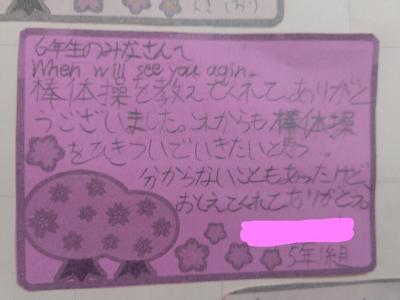 6年生のみなさんへ
When will see you agin.
棒体操を教えてくれて、ありがと
うございました。これからも棒体操
をひきついでいきたいと思う…
分からないこともあったけど、
おしえてくれてありがとう。
5年1組